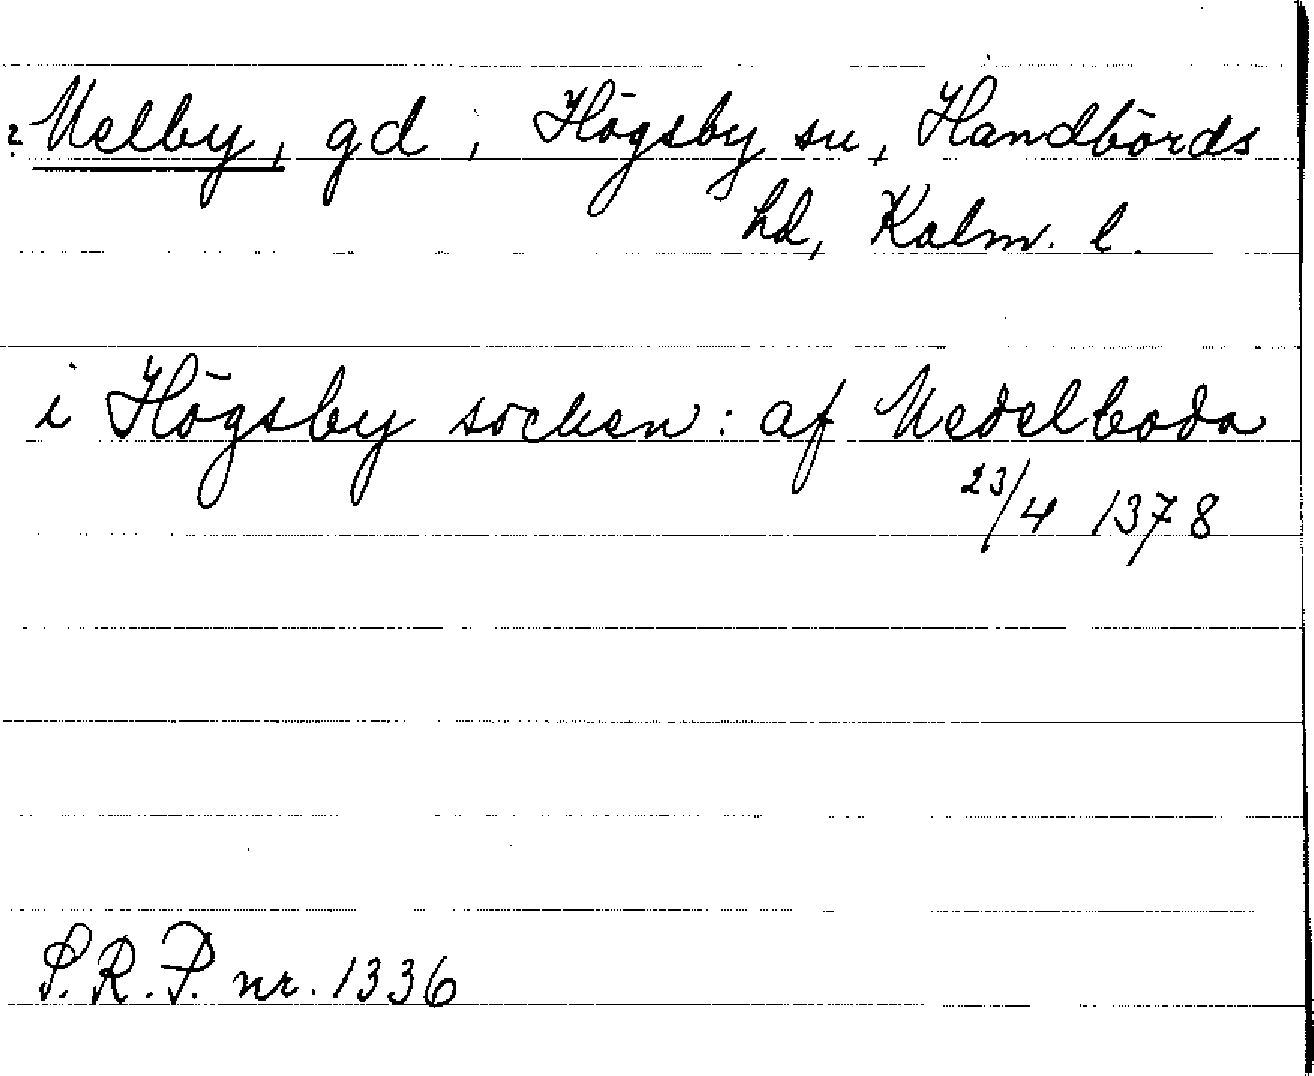 ? Melby, gd, Högsby sn, Handbörds
hd, Kalm. l.
i Högsby socken: af Medelboda
23/4 1378
S.R.P. nr. 1336